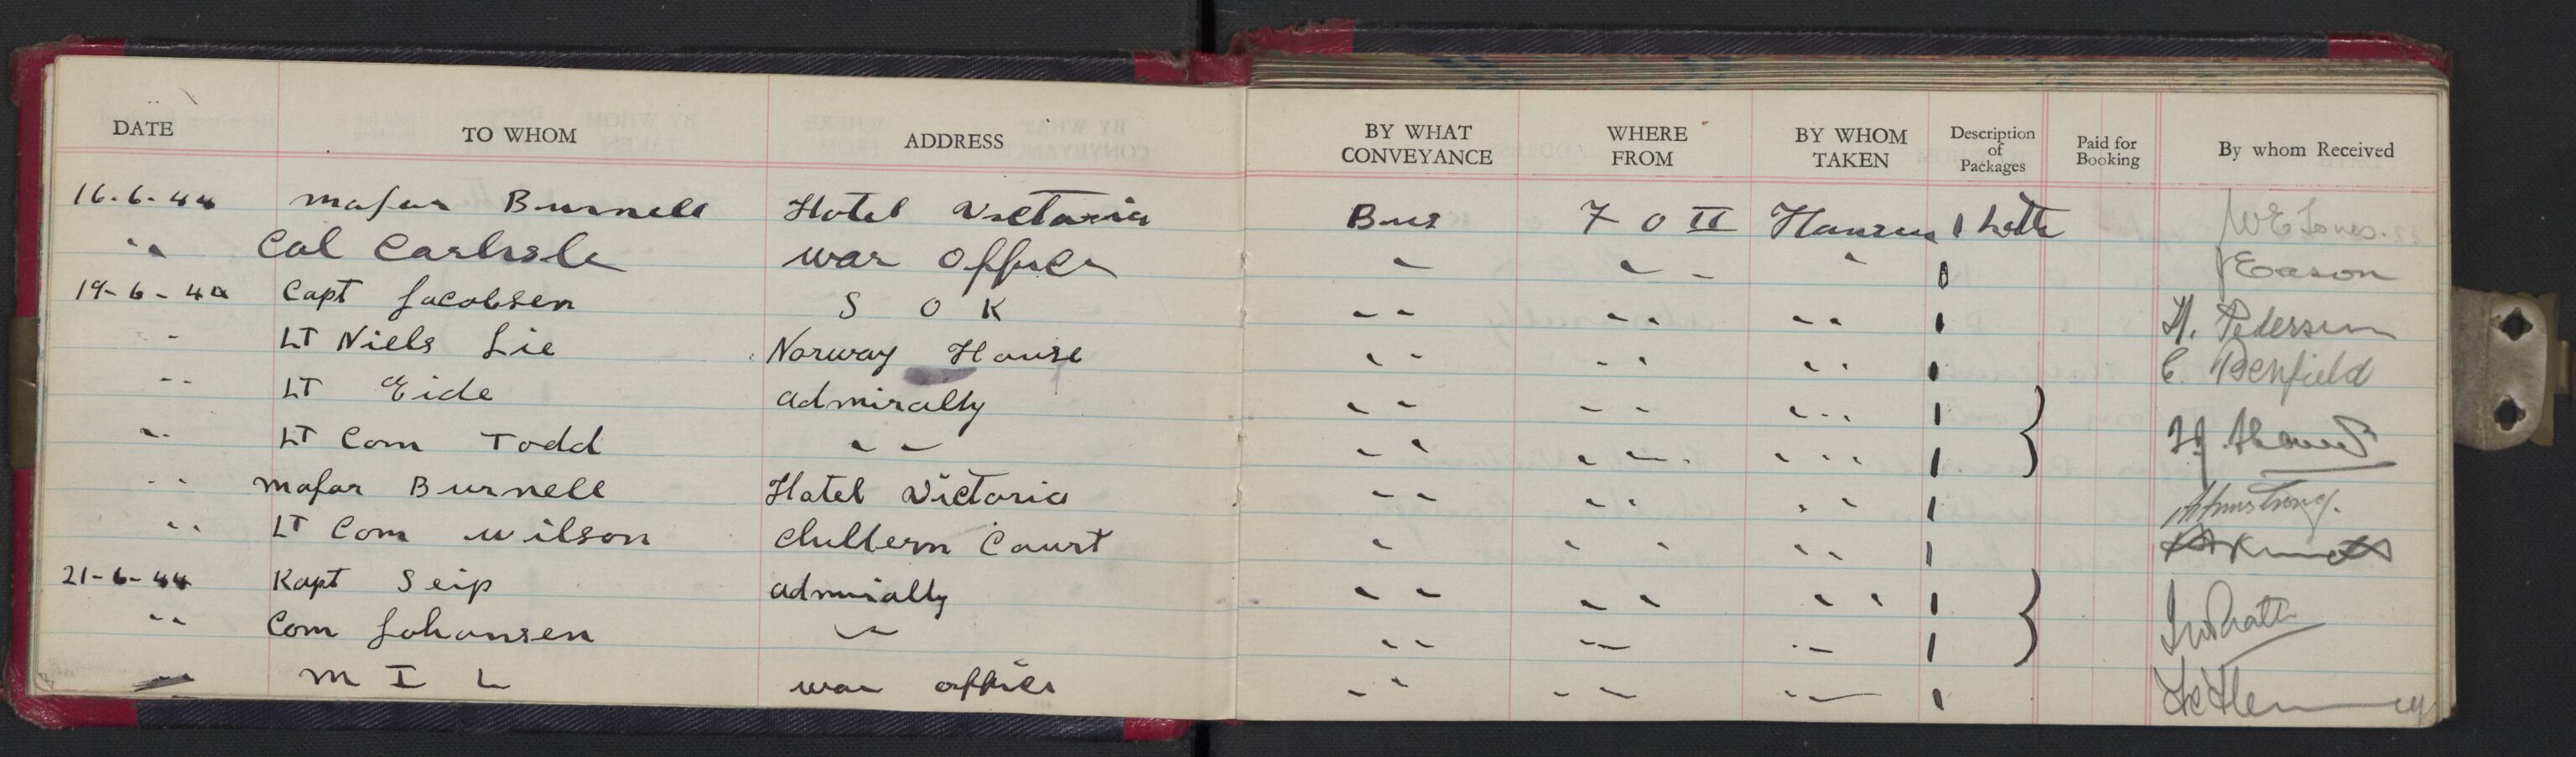 DATE TO WHOM ADDRESS BY WHAT CONVEYANCE WHERE FROM BY WHOM TAKEN Description of Packages Paid for Booking By whom Received
16.6.44 Major Burnell Hotel Victoria Bus F O II Hansen 1 W E Jones
" Col Carlisle War Office " " " " Eason
19-6-44 Capt Jacobsen S O K " " " " " " 1 H. Pedersen
" LT Niels Lie Norway House " " " " " " 1 C. Penfield
" " LT Eide Admiralty " " " " " " " 1
" " LT Com Todd " " " " " " " " " " 1
" " Major Burnell Hotel Victoria " " " " " " 1 Armstrong.
" " LT Com Wilson Chiltern Court " " " " " 1
21-6-44 Kapt Seip Admiralty " " " " " " 1
" " Com Johansen " " " " " " " 1
" M I L War Office " " " " " " 1